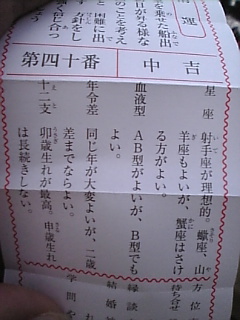 運
を乗せた船出
日が昇る様な
のことを考え
困難に出
針をし
合う
第四十番
中吉
星座 射手座が理想的。蠍座、山
羊座もよいが、蟹座はさけ
る方がよい。
血液型 AB型がよいが、B型でも
よい。
年令差 同じ年が大変よいが、二歳
差までならよい。
十二支 卯歳生れが最高。申歳生れ
は長続きしない。
方位
待ち合せ
縁談
結婚
学問